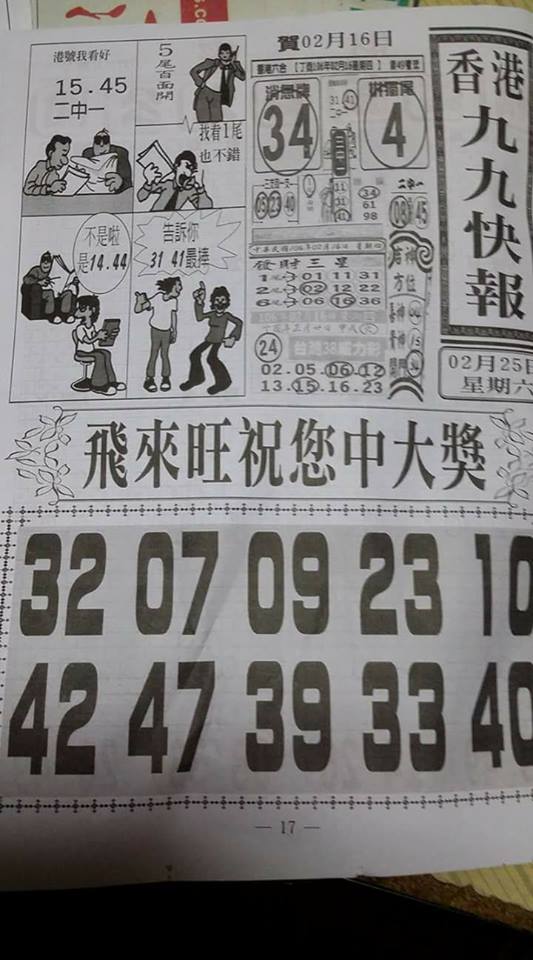 賀02月16日
香港九九快報
02月25日
星期六
港號我看好
15.45
二中一
5尾百面開
我看1尾
也不錯
不是啦
是14.44
告訴你
31 41最捧
34
4
31 41
二中一
11
31
41
34
61
98
二中一
08 45
15 23 40
發財三星
1尾 01 11 31
2尾 02 12 22
6尾 06 16 36
方位
24
台灣38威力彩
02.05.06.12
13.15.16.23
飛來旺祝您中大獎
32 07 09 23 10
42 47 39 33 40
— 17 —